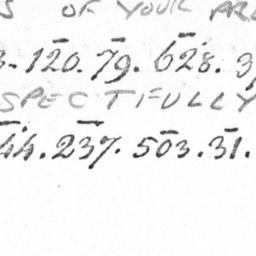 S OF YOUR
120. 79. 628.
SPECTFULLY
44. 237. 503. 31.